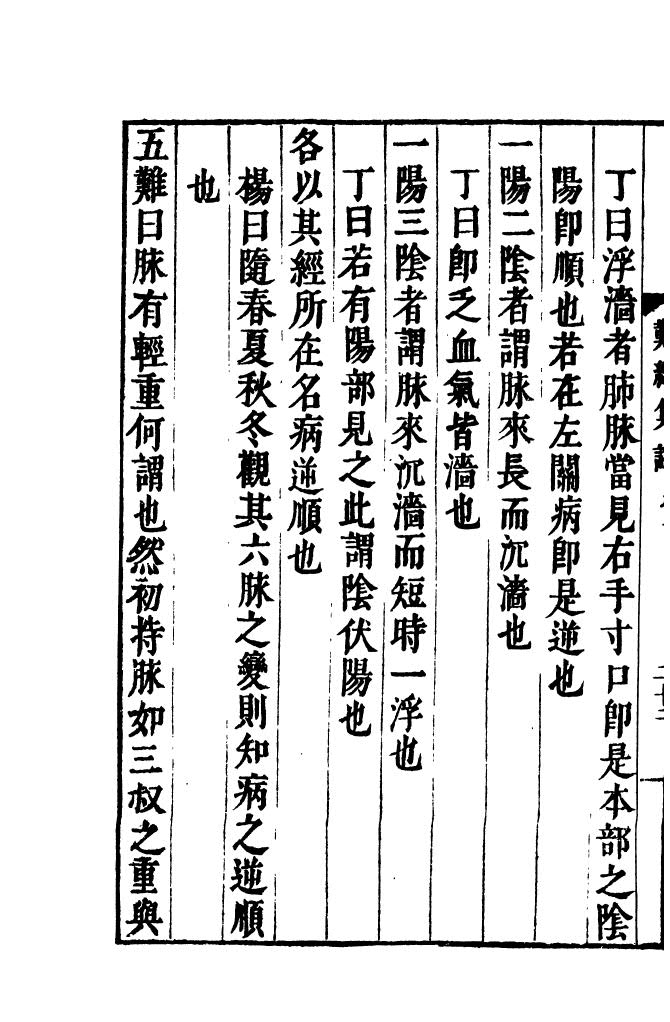 丁曰浮濇者肺脉當見右手寸口卽是本部之陰
陽卽順也若在左關病卽是逆也
一陽二陰者謂脉來長而沉濇也
丁曰卽乏血氣皆濇也
一陽三陰者謂脉來沉濇而短時一浮也
丁曰若有陽部見之此謂陰伏陽也
各以其經所在名病逆順也
楊曰隨春夏秋冬觀其六脉之變則知病之逆順
也
五難曰脉有輕重何謂也然初持脉如三叔之重與